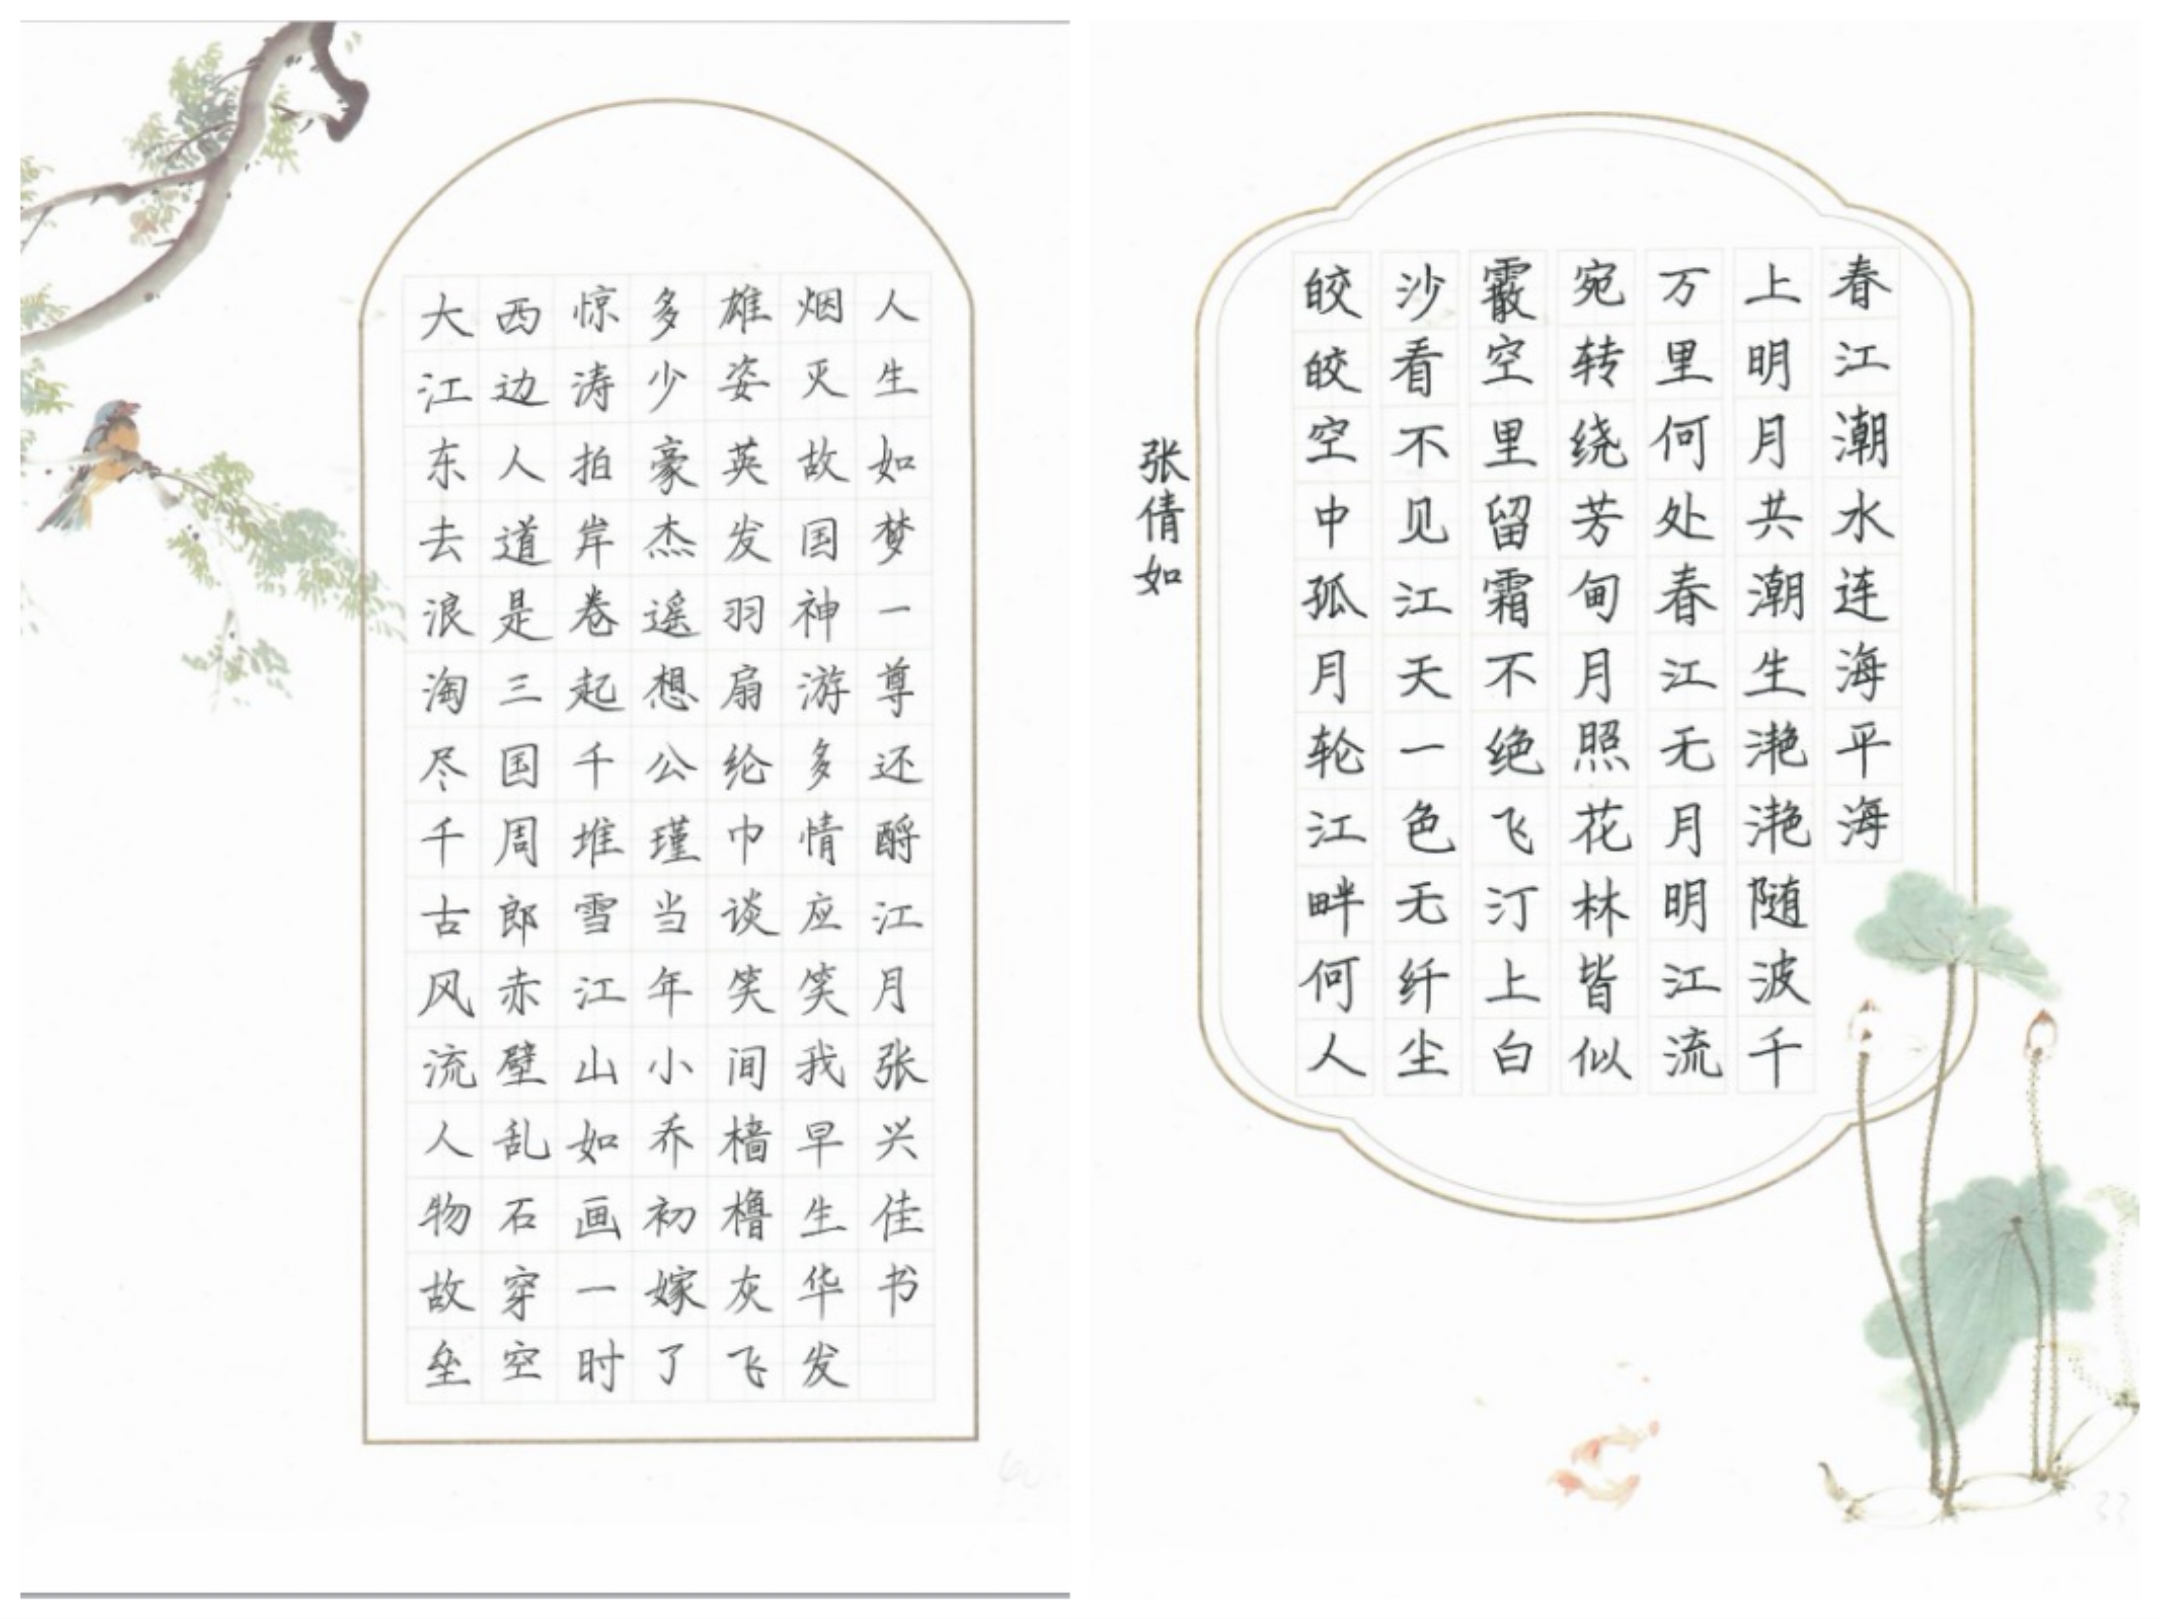 大江东去浪淘尽千古风流人物故垒
西边人道是三国周郎赤壁乱石穿空
惊涛拍岸卷起千堆雪江山如画一时
多少豪杰遥想公瑾当年小乔初嫁了
雄姿英发羽扇纶巾谈笑间樯橹灰飞
烟灭故国神游多情应笑我早生华发
人生如梦一尊还酹江月张兴佳书
春江潮水连海平海
上明月共潮生滟滟随波千
万里何处春江无月明江流
宛转绕芳甸月照花林皆似
霰空里留霜不绝飞汀上白
沙看不见江天一色无纤尘
皎皎空中孤月轮江畔何人
张倩如